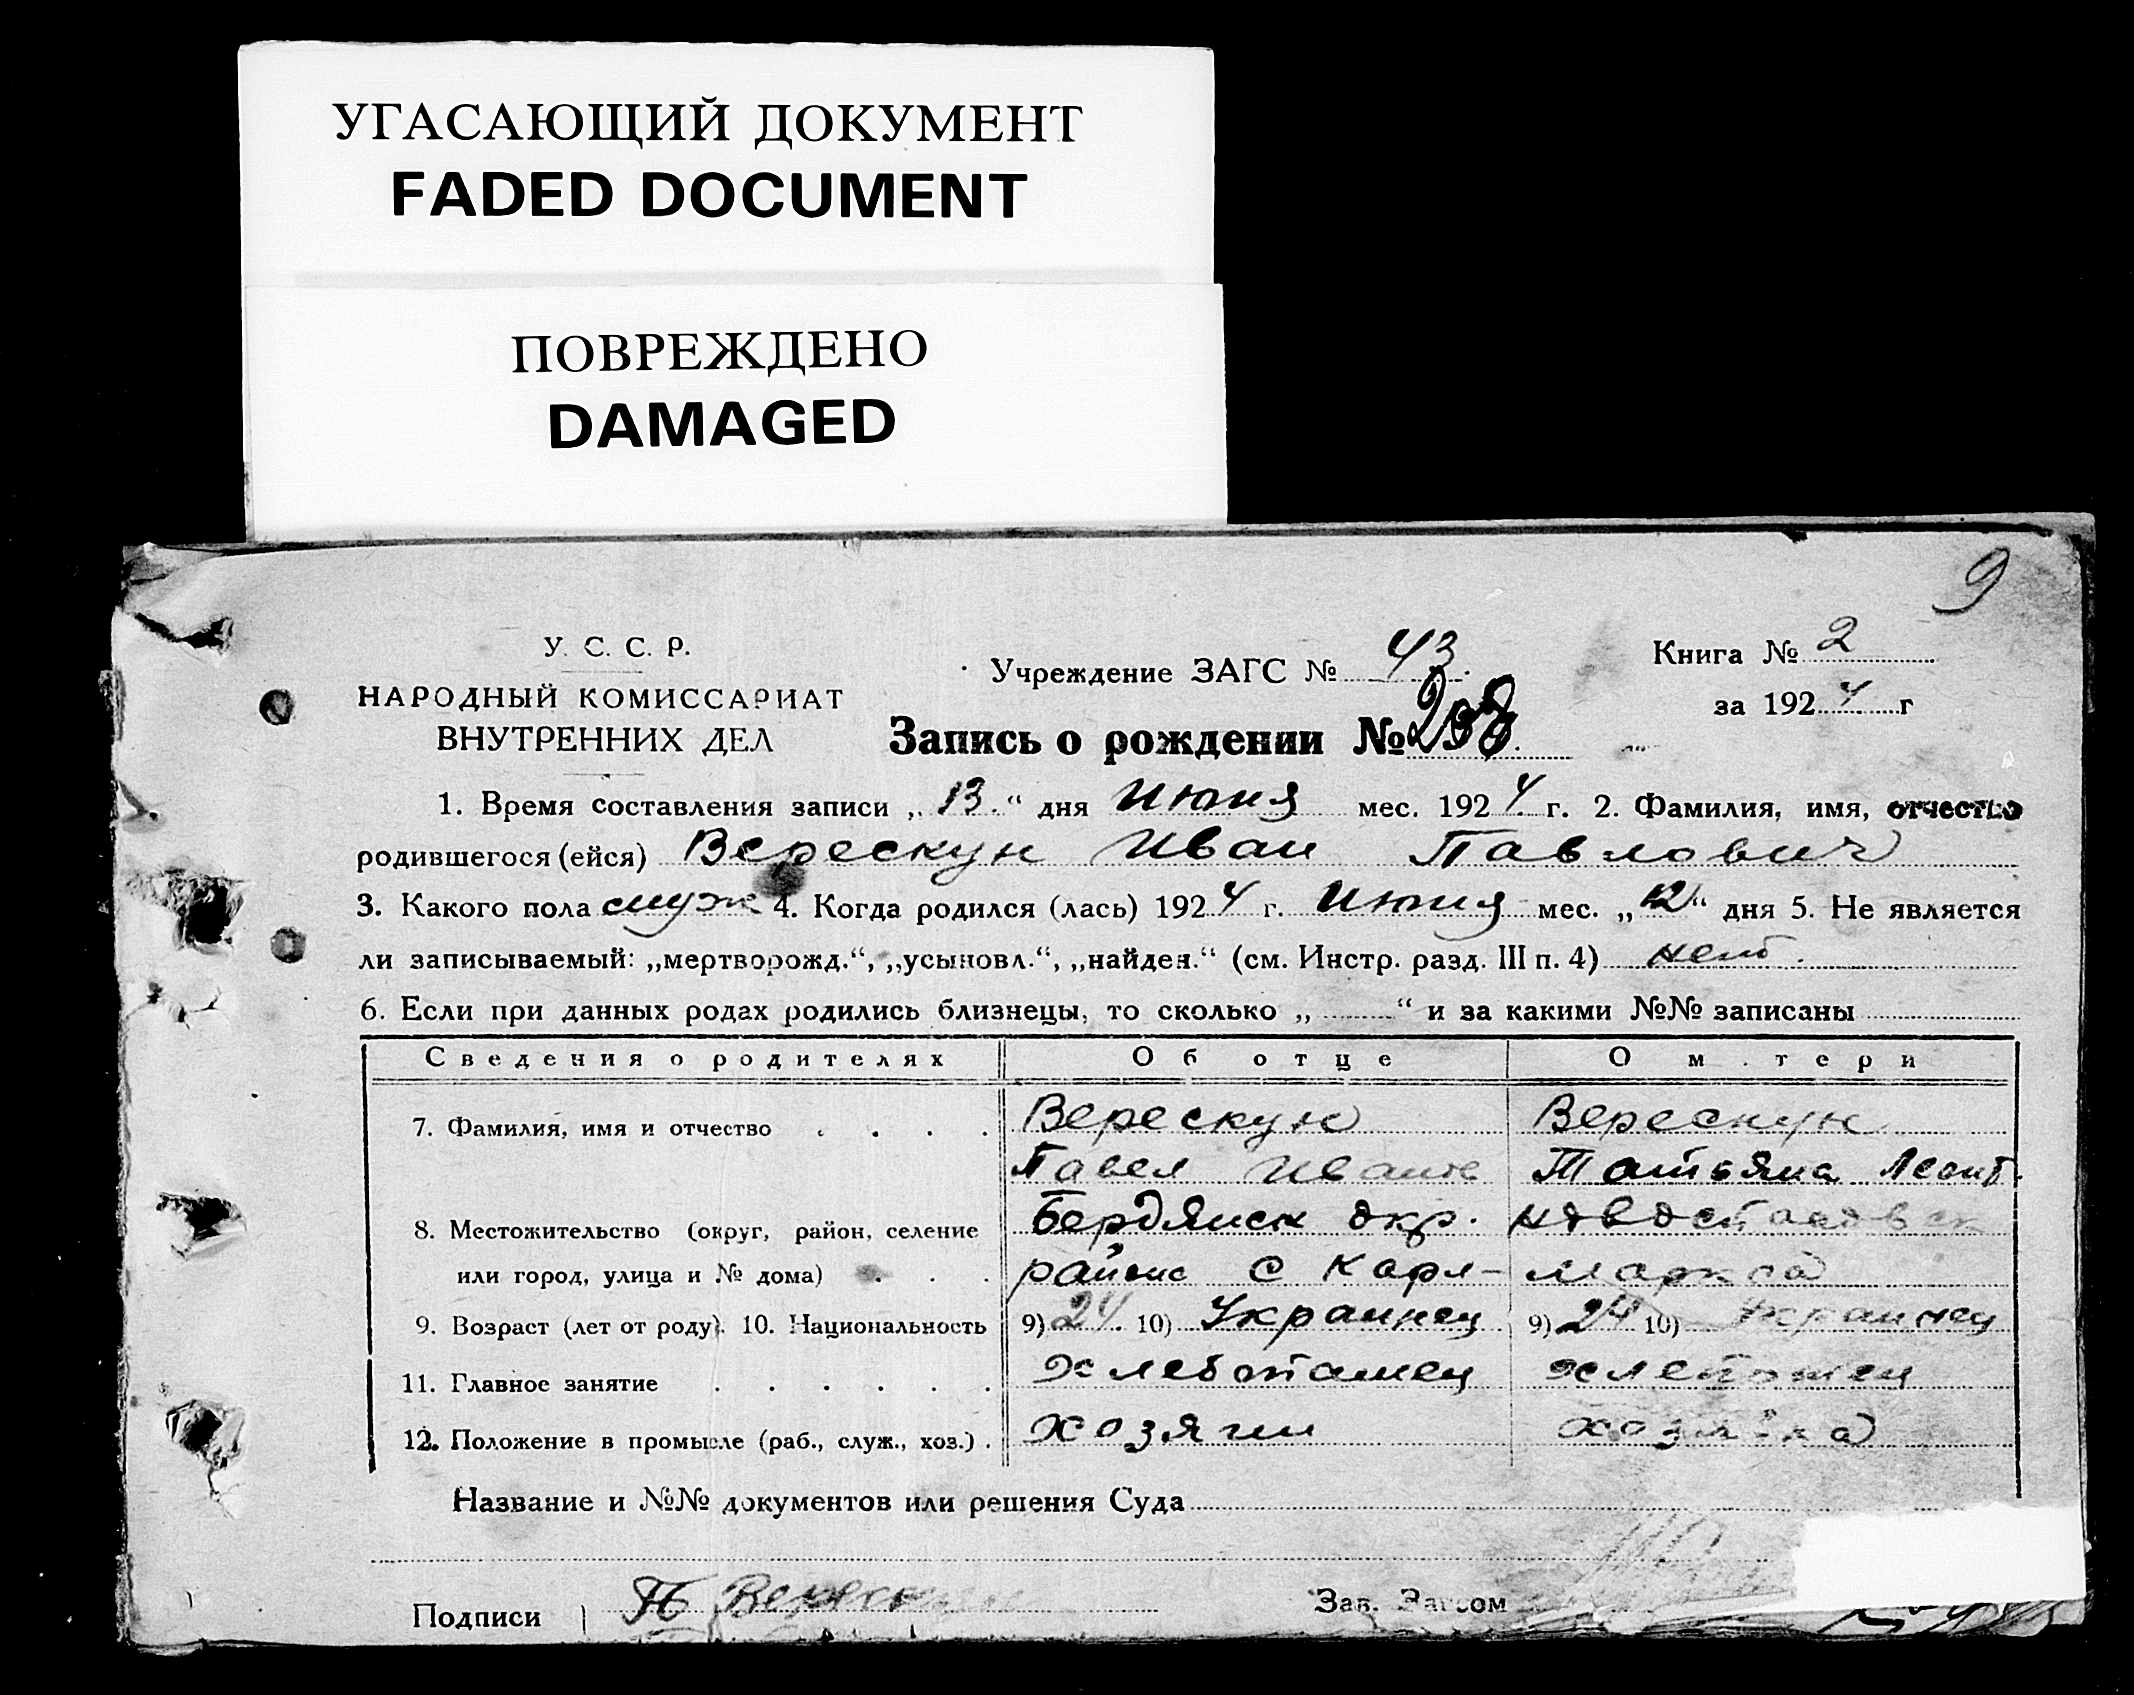 УГАСАЮЩИЙ ДОКУМЕНТ
FADED DOCUMENT
ПОВРЕЖДЕНО
DAMAGED
9
У. С. С. Р.
НАРОДНЫЙ КОМИССАРИАТ
ВНУТРЕННИХ ДЕЛ
Учреждение ЗАГС № 43
Книга № 2
за 1924 г
Запись о рождении №
1. Время составления записи „13.“ дня Июня мес. 1924 г. 2. Фамилия, имя, отчество
родившегося (ейся) Верескун Иван Павлович
3. Какого пола муж 4. Когда родился (лась) 1924 г. Июня мес. „12“ дня 5. Не является
ли записываемый: „мертворожд.“, „усыновл.“, „найден.“ (см. Инстр. разд. III п. 4) нет.
6. Если при данных родах родились близнецы, то сколько „ “ и за какими №№ записаны
Сведения о родителях Об отце О м.тери
7. Фамилия, имя и отчество Верескун Верескун
Павел Иванов Татьяна Леонт.
8. Местожительство (округ, район, селение Бердянск окр.
или город, улица и № дома) района с Карл- Маркса
9. Возраст (лет от роду). 10. Национальность 9) 24 10) Украинец 9) 24 10) Украинец
11. Главное занятие Хлебопашец
12. Положение в промысле (раб., служ., хоз.) Хозяин хозяйка
Название и №№ документов или решения Суда
Подписи П Верескун Зав. Загсом